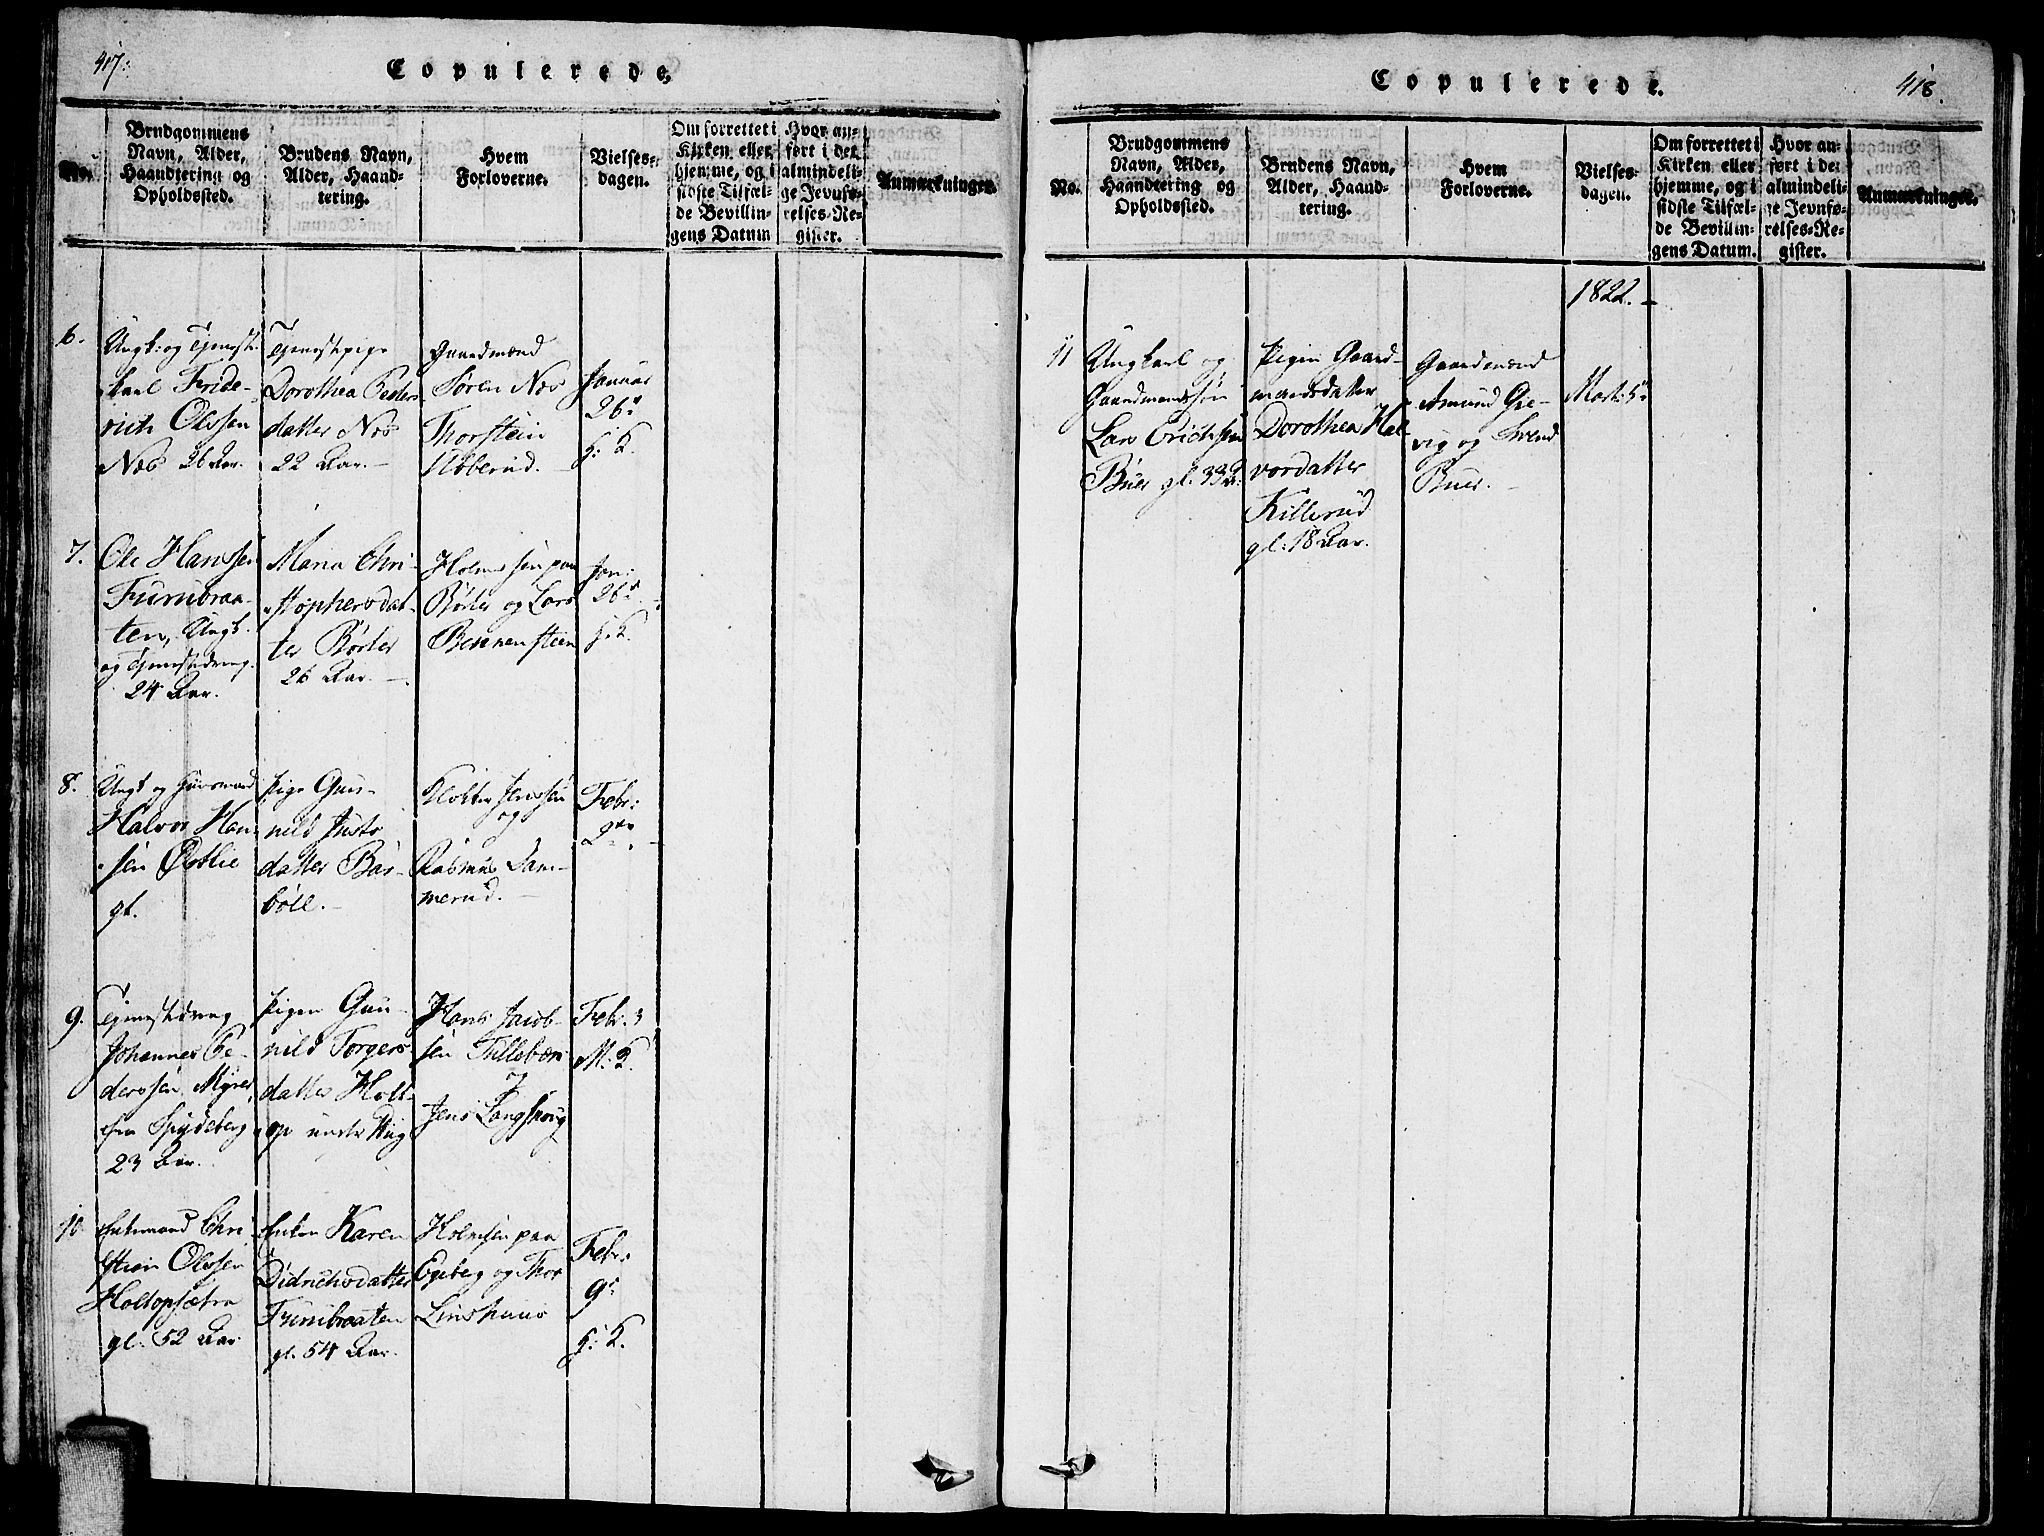 417.
Copulerede.
No.
Brudgommens
Navn, Alder,
Haandtering og
Opholdssted.
Brudens Navn,
Alder, Haand-
tering.
Hvem
Forloverne.
Vielses-
dagen.
Om forrettet i
Kirken eller
hjemme, og i
sidste Tilfæl-
de Bevillin-
gens Datum
Hvor an-
ført i det
almindeli-
ge Jevnfø-
relses-Re-
gister.
Anmærkninger.
6.
Ungk: og Tjeneste-
karl Fride-
rich Olssen
Næs 26 Aar.
Tjenestepige
Dorothea Peders
datter Næs
22 Aar.
Gaardmænd
Sören Næs
Thorstein
Januar
26de
H: K.
7.
Ole Hanssen
Furubraa-
ten, Ungk.
og Tjenestedreng.
24 Aar.
Maria Chri-
stophersdat-
ter Börter
26 Aar.
Holm sen paa
Börter og Lars
Bennensteen
Jan:
26de
H: K.
8.
Ungk og Huusmand
Halvor Han-
sen Östlie
gl.
Pige Gun-
nild Justs
datter Bas-
böll.
Holter Jenssen
og
Rasmus Lam-
merud.
Febr:
2den
9.
Tjenestedreng
Johannes Pe-
derssen Myrer
fra Spydeberg
23 Aar.
Pigen Gun-
nild Torgers
datter Holt-
op under Hug
Hans Jacob-
sen Tillebæn
Jens Langskoug
Febr: 3
M. K.
10
Enkemand Chri
stian Olssen
Holtopsætra
gl. 52 Aar
Enken Karen
Didrichsdatter
Furubraaten
gl. 54 Aar.
Holmsen paa
Egeberg og Thor
Linshuus
Febr:
9de
H: K.
Copulerede.
418.
No.
Brudgommens
Navn, Alder,
Haandtering og
Opholdssted.
Brudens Navn,
Alder, Haand-
tering.
Hvem
Forloverne.
Vielses-
dagen.
Om forrettet i
Kirken eller
hjemme, og i
sidste Tilfæl-
de Bevillin-
gens Datum.
Hvor an-
ført i det
almindeli-
ge Jevnfø-
relses-Re-
gister.
Anmærkninger.
1822.
11
Ungkarl og
Gaardmandssön
Lars Erichsen
Buer gl. 33 A:
Pigen Gaard-
mandsdatter
Dorothea Hal-
vordatter
Killerud
gl: 18 Aar.
Gaardmænd
Amund Gre-
vig og Svend
Buer.